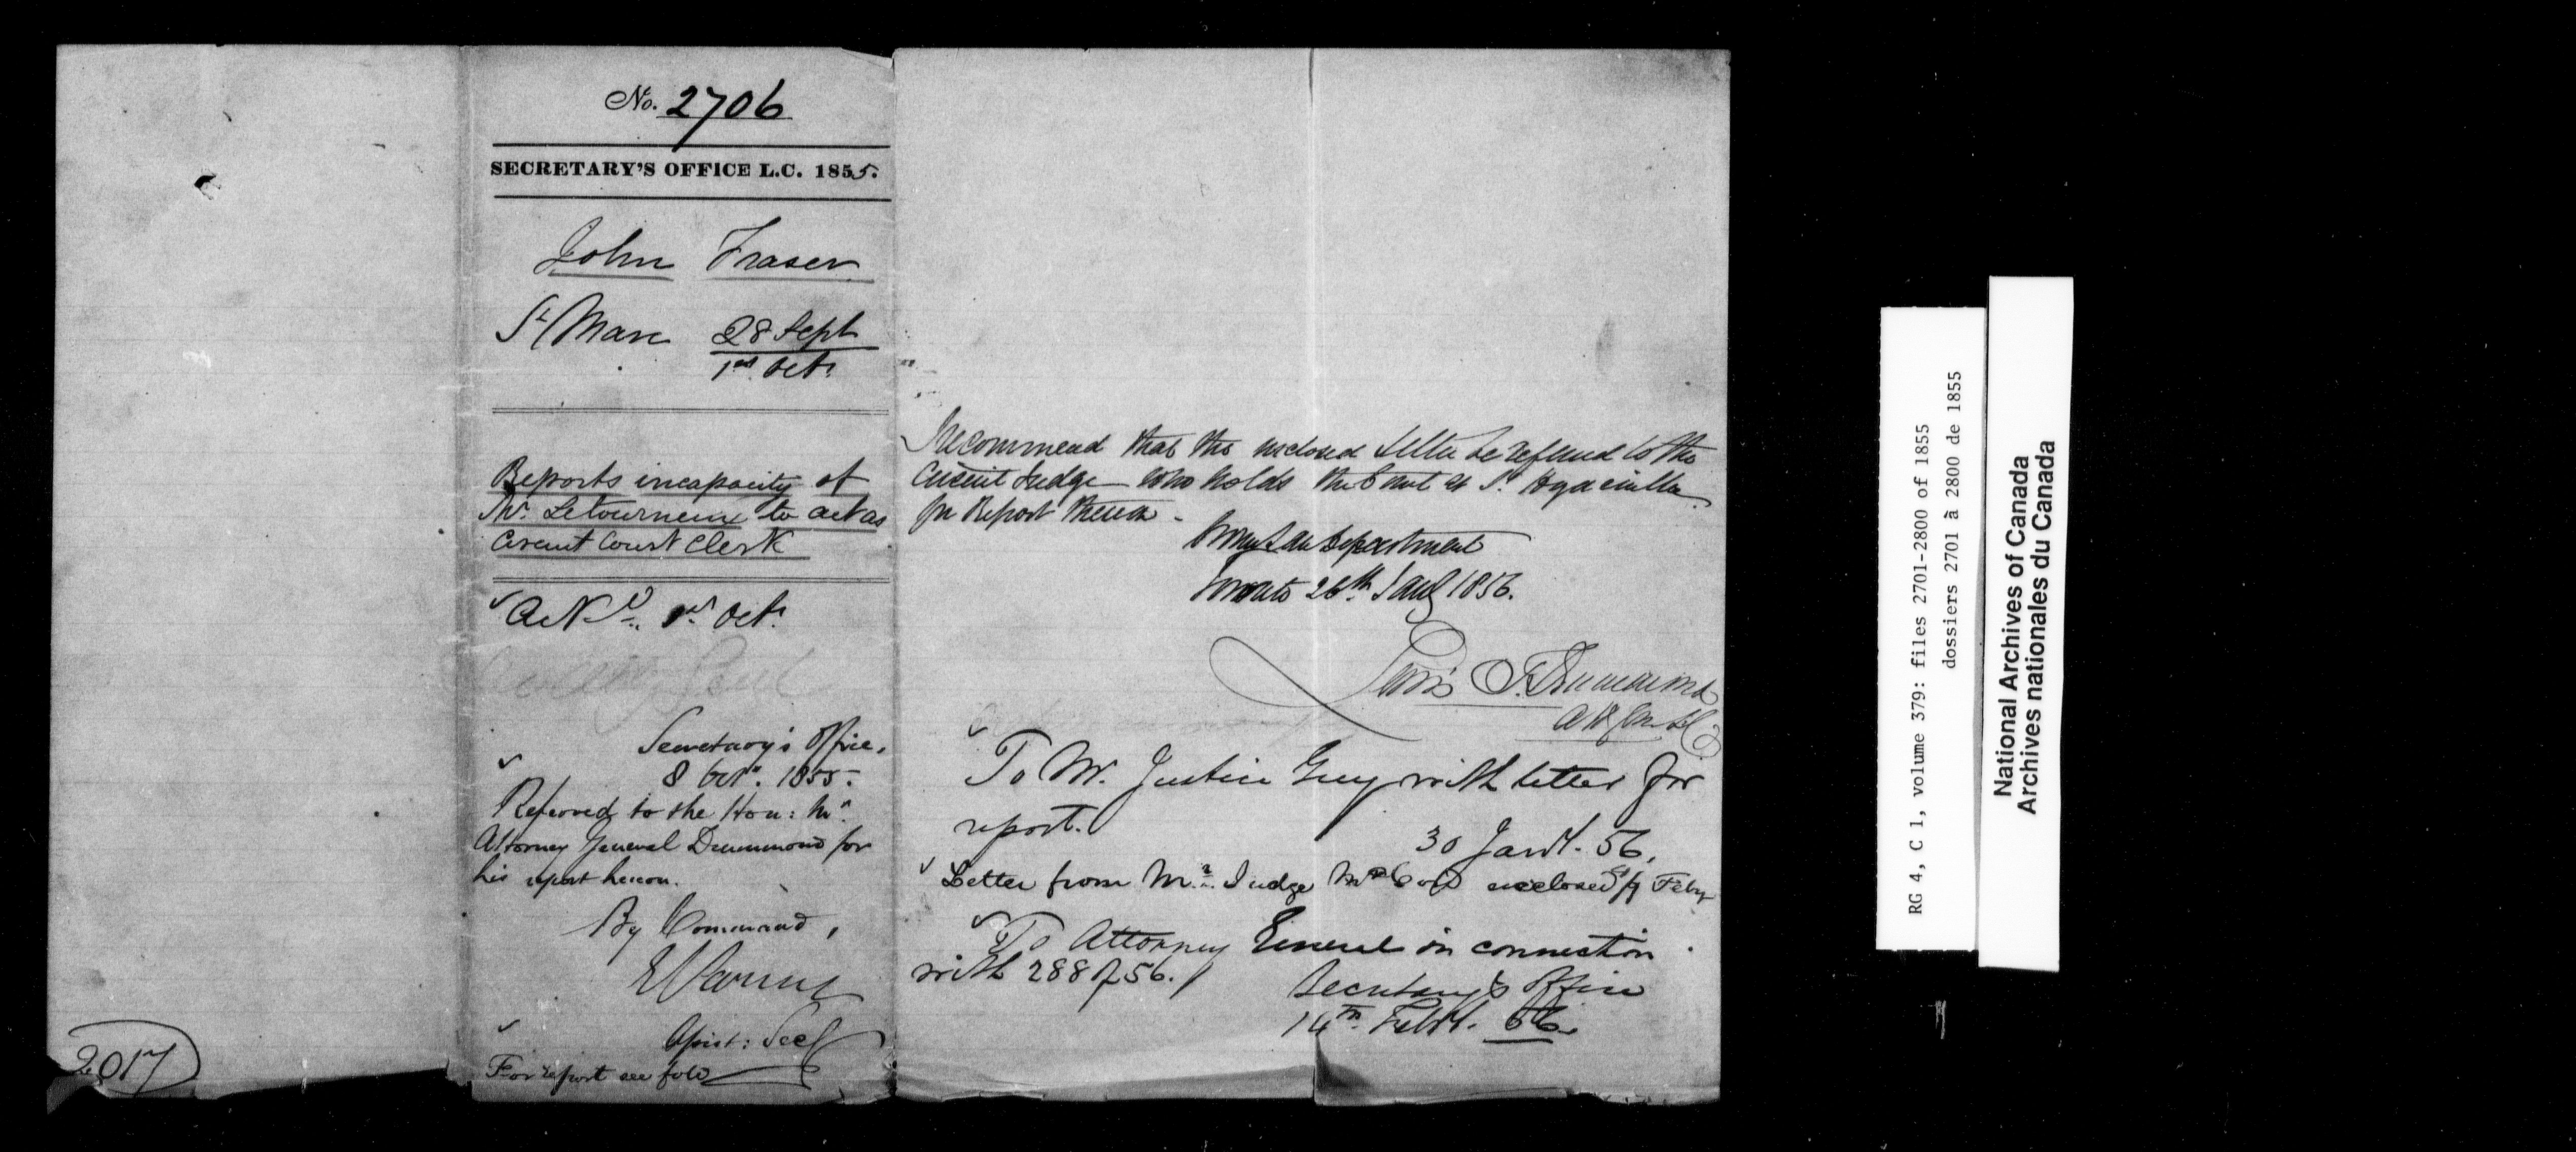 No. 2706
SECRETARY'S OFFICE L.C. 1855.
John Fraser
St Marc 28 Sept
1st Oct.
Reports incapacity of
Mr. Letourneux to act as
Circuit Court Clerk
Ackd. 1st Oct.
Secretary's Office,
8 Oct. 1855.
Referred to the Hon: Mr.
Attorney General Drummond for
his report hereon.
By Command,
Assist: Secy
For report see fold
2017
I recommend that the inclosed letter be referred to the
Circuit Judge who holds the Court at St. Hyacinthe
for Report thereon.
Crown Law Department
Toronto 26th Jany 1856.
Lewis T. Drummond
Att Gen. L C
To Mr. Justice Guy with letter for
report.
30 Jany. 56.
Letter from Mr. Judge McCord enclosed 9 Feby
To Attorney General in connection
with 288 of 56.
Secretary's Office
14th Feby. 56.
RG 4, C 1, volume 379: files 2701-2800 of 1855
dossiers 2701 à 2800 de 1855
National Archives of Canada
Archives nationales du Canada